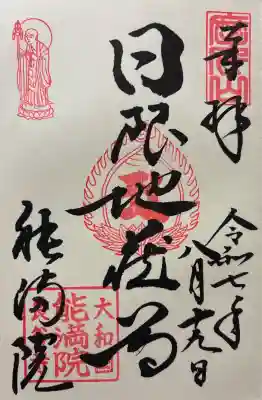 奉拝
令和七年
八月十九日
日限地蔵尊
能満院
大和国
能満院